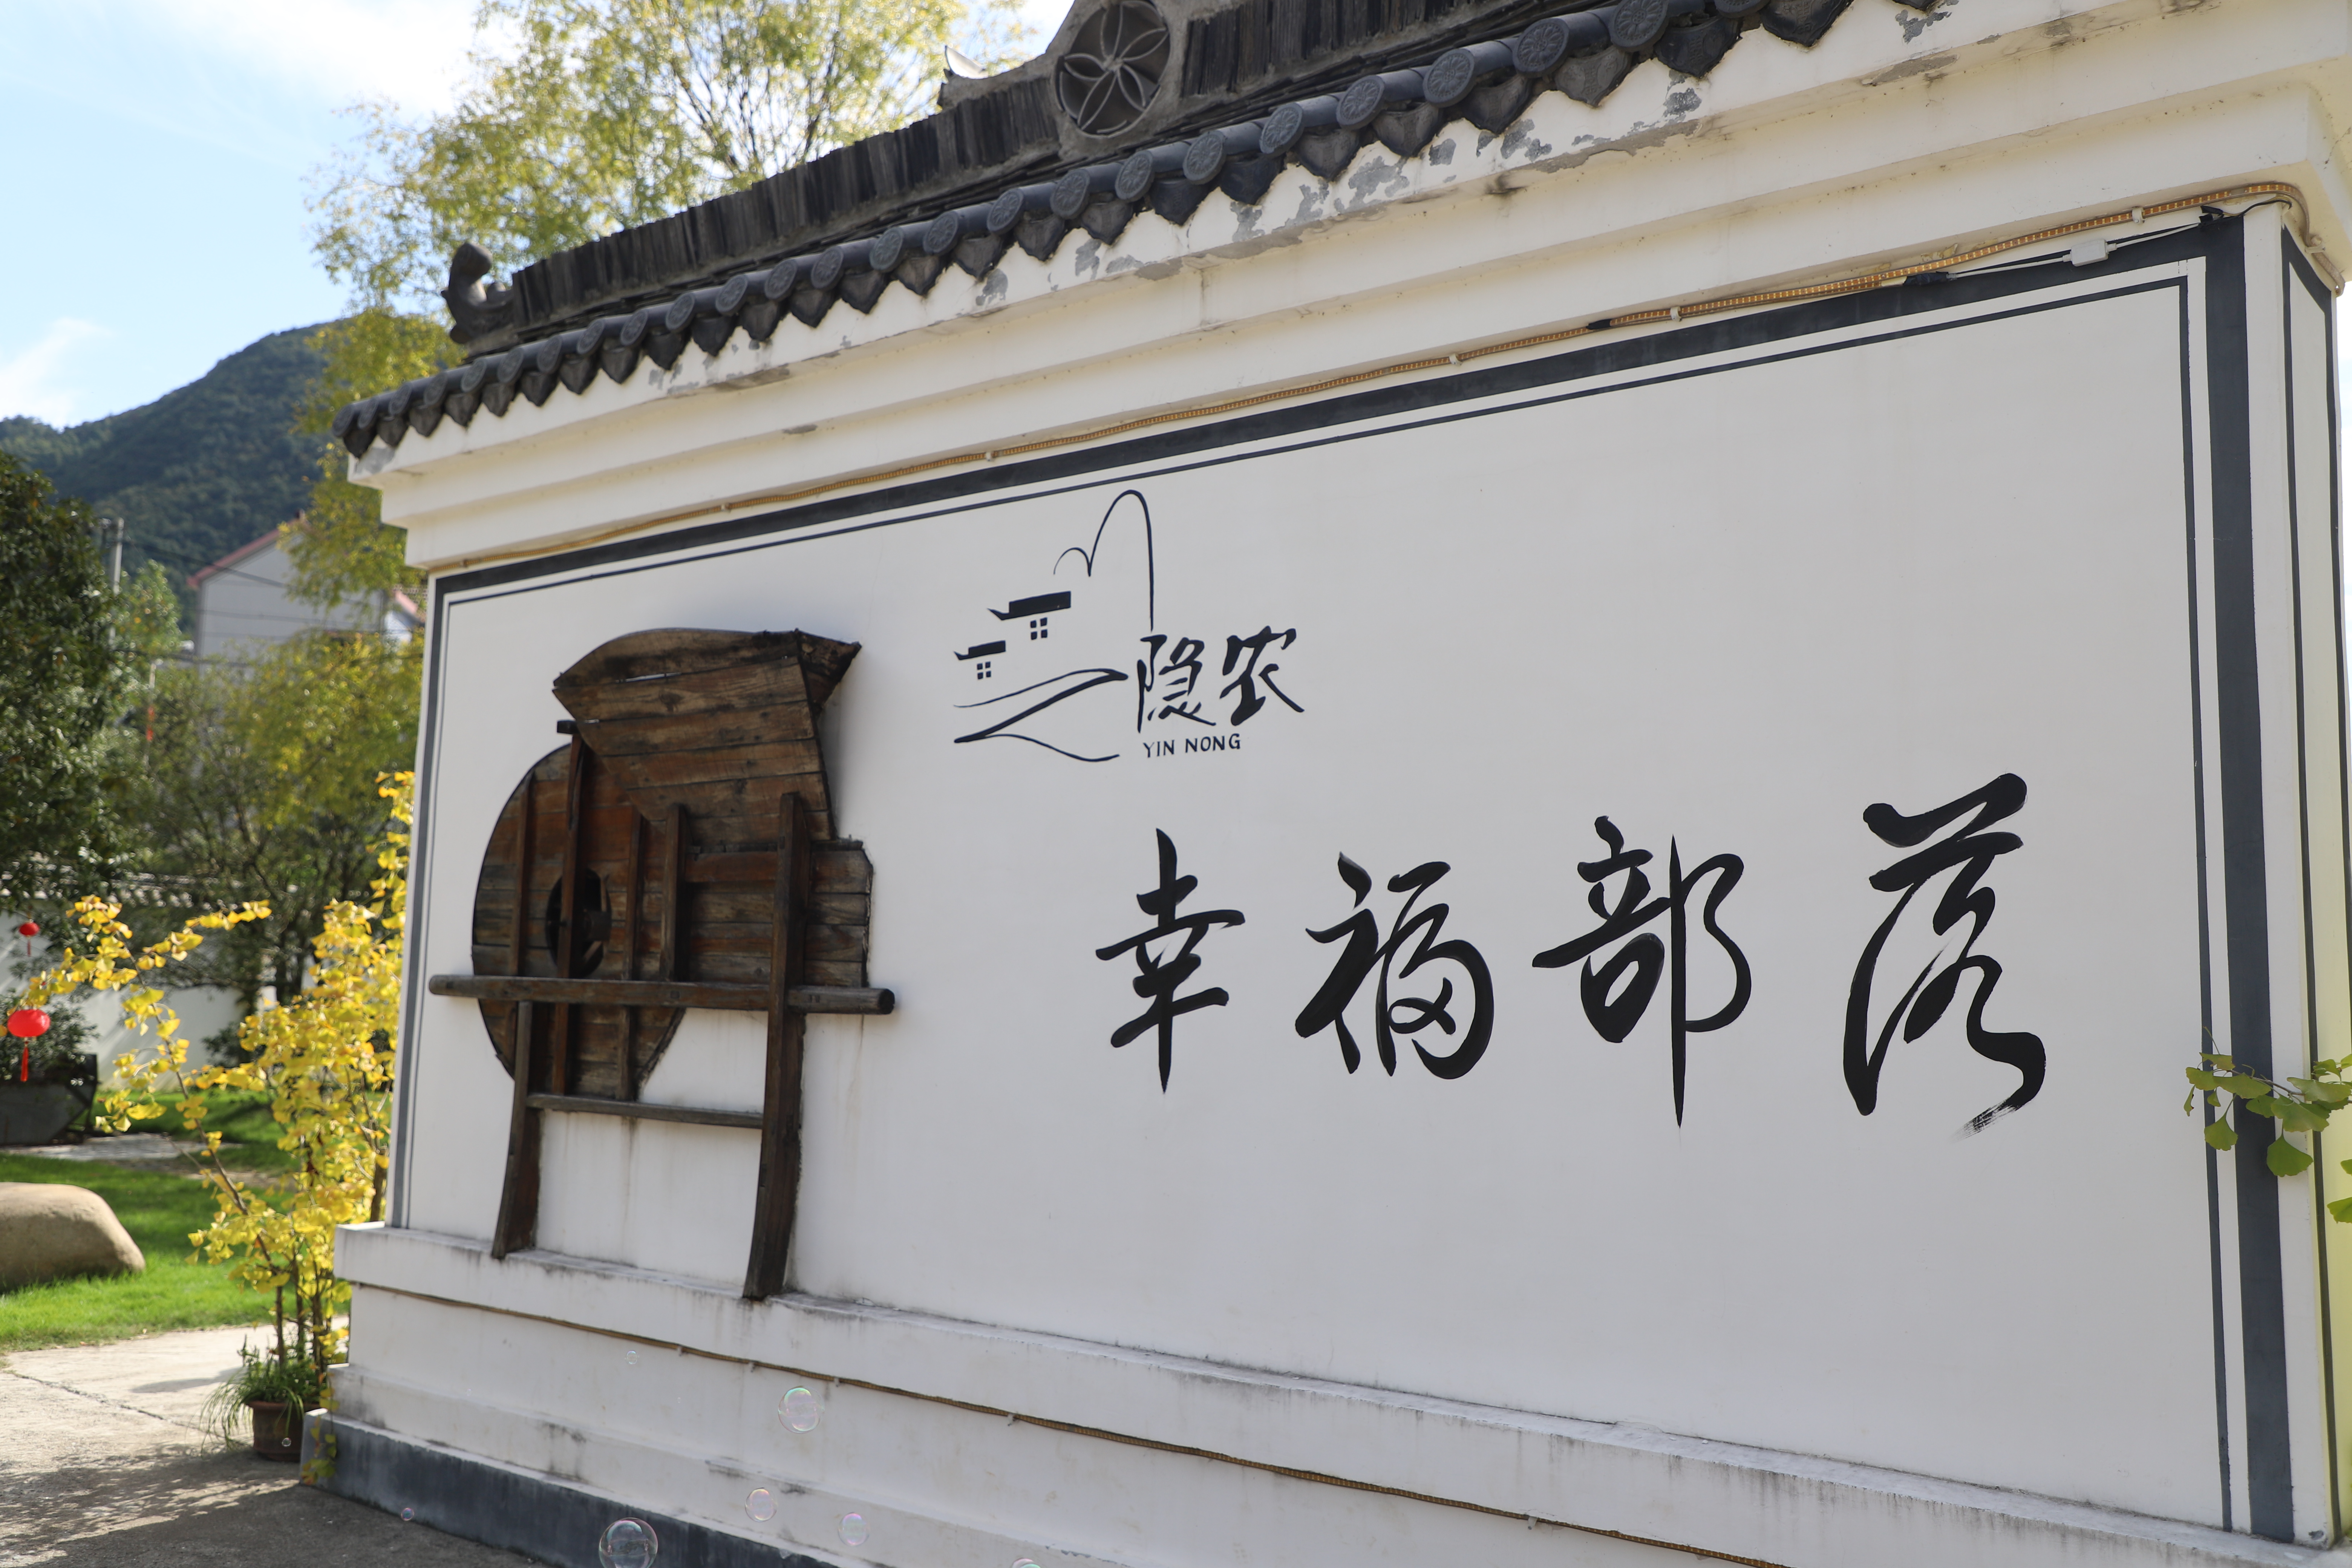 隐农
YIN NONG
幸福部落